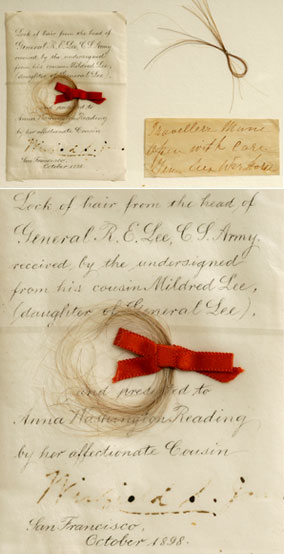 Lock of hair from the head of
General R. E. Lee, C S. Army
received by the undersigned
from his cousin Mildred Lee,
(daughter of General Lee),
and presented to
Anna Washington Reading
by her affectionate Cousin
San Francisco,
October 1898.
Traveller Mane
open with care
Gen Lee War horse
Lock of hair from the head of
General R. E. Lee, C S. Army.
received by the undersigned
from his cousin Mildred Lee,
(daughter of General Lee),
and presented to
Anna Washington Reading
by her affectionate Cousin
San Francisco,
October 1898.